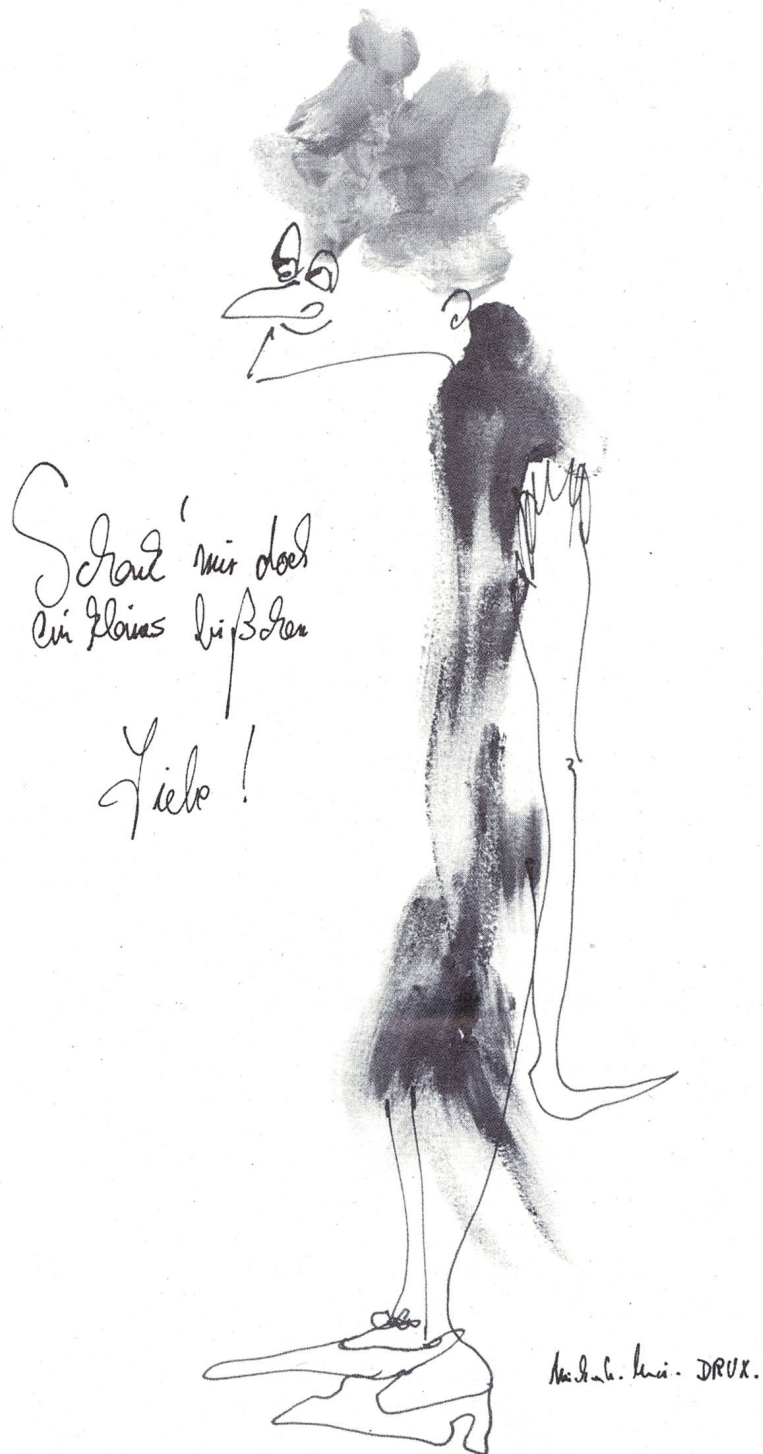 Schenk' mir doch
ein kleines bißchen
Liebe!
DRUX.